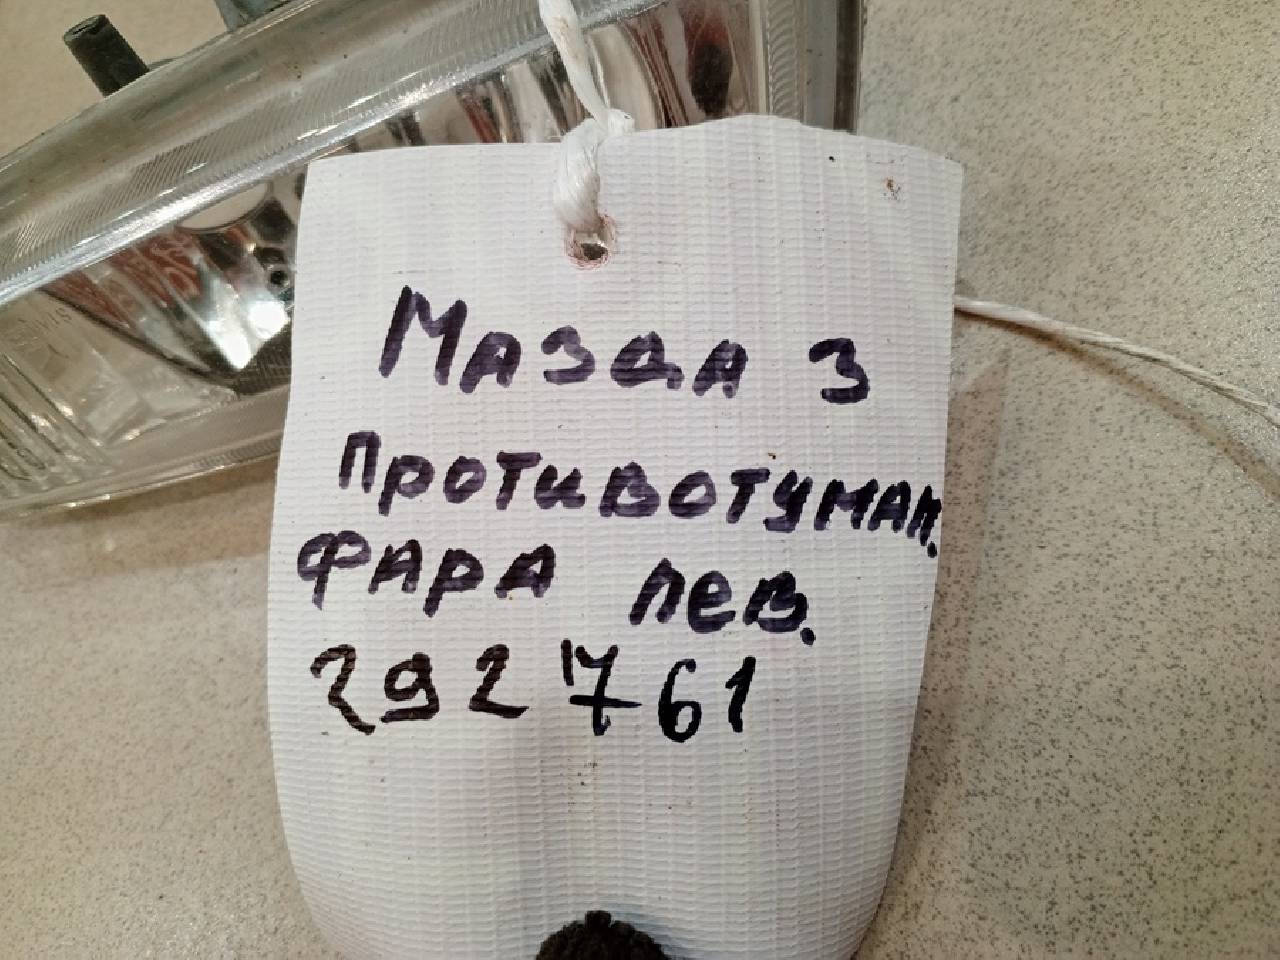 Мазда 3
Противотуман.
фара лев.
292761